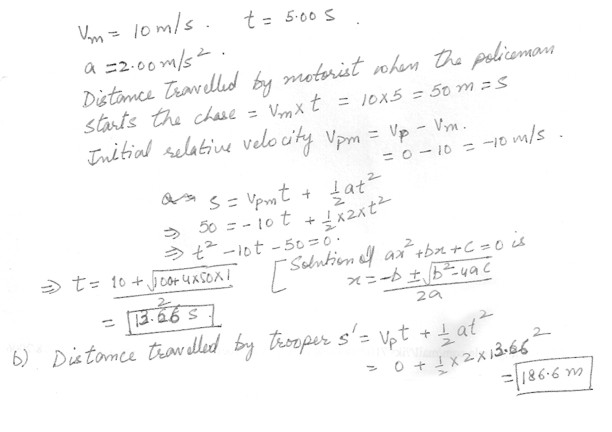 Vm = 10 m/s . t = 5.00 S .
a = 2.00 m/s² .
Distance Travelled by motorist when the policeman
starts the chase = Vm x t = 10x5 = 50 m = S
Initial relative velocity Vpm = Vp - Vm.
= 0 - 10 = -10 m/s .
S = Vpm t + ½ at²
⇒ 50 = -10 t + ½ x 2 x t²
⇒ t² - 10t - 50 = 0.
[ Solution of ax² + bx + c = 0 is
⇒ t = (10 + √(100 + 4x50x1)) / 2
x = (-b ± √(b² - 4ac)) / 2a
= 13.66 S .
b) Distance travelled by trooper s' = Vp t + ½ at²
= 0 + ½ x 2 x 13.66²
= 186.6 m